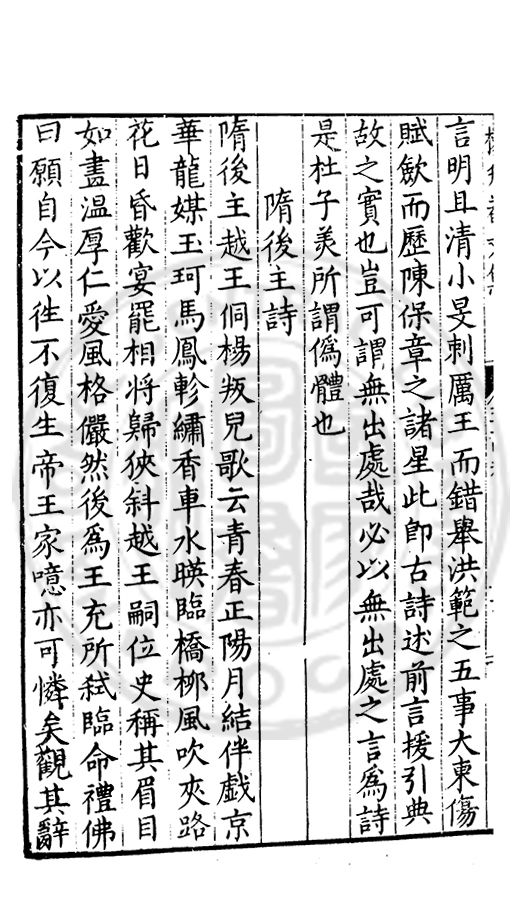 言明且清小旻刺厲王而錯舉洪範之五事大東傷
賦斂而歷陳保章之諸星此即古詩述前言援引典
故之實也豈可謂無出處哉必以無出處之言為詩
是杜子美所謂偽體也
隋後主詩
隋後主越王侗楊叛兒歌云青春正陽月結伴戲京
華龍媒玉珂馬鳳軫繡香車水暎臨橋栁風吹夾路
花日昏歡宴罷相將歸狹斜越王嗣位史稱其眉目
如畫溫厚仁愛風格儼然後為王充所弒臨命禮佛
曰願自今以徃不復生帝王家噫亦可憐矣觀其辭